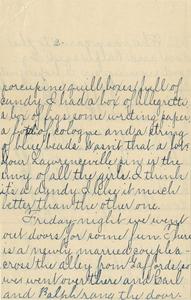 2.
porcupine quill boxes full of
candy. I had a box of allegretti
a box of figs some writing paper
a bot. of cologne and a string
of blue beads. Wasn't that a lot.
Your Lawrenceville pin is the
envy of all the girls. I think
it's a dandy. I like it much
better than the other one.
Friday night we went
out doors for some fun. There
is a newly married couple a-
cross the alley from Lafforde's
we went over there and Carl
and Ralph rang the door